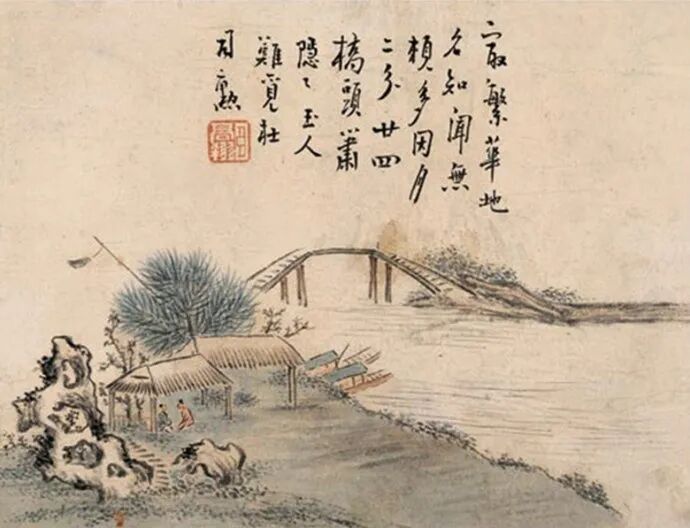 最繁華地
名知聞無
賴多因月
二分廿四
橋頭簫
隱〻玉人
難覓杜
司勳